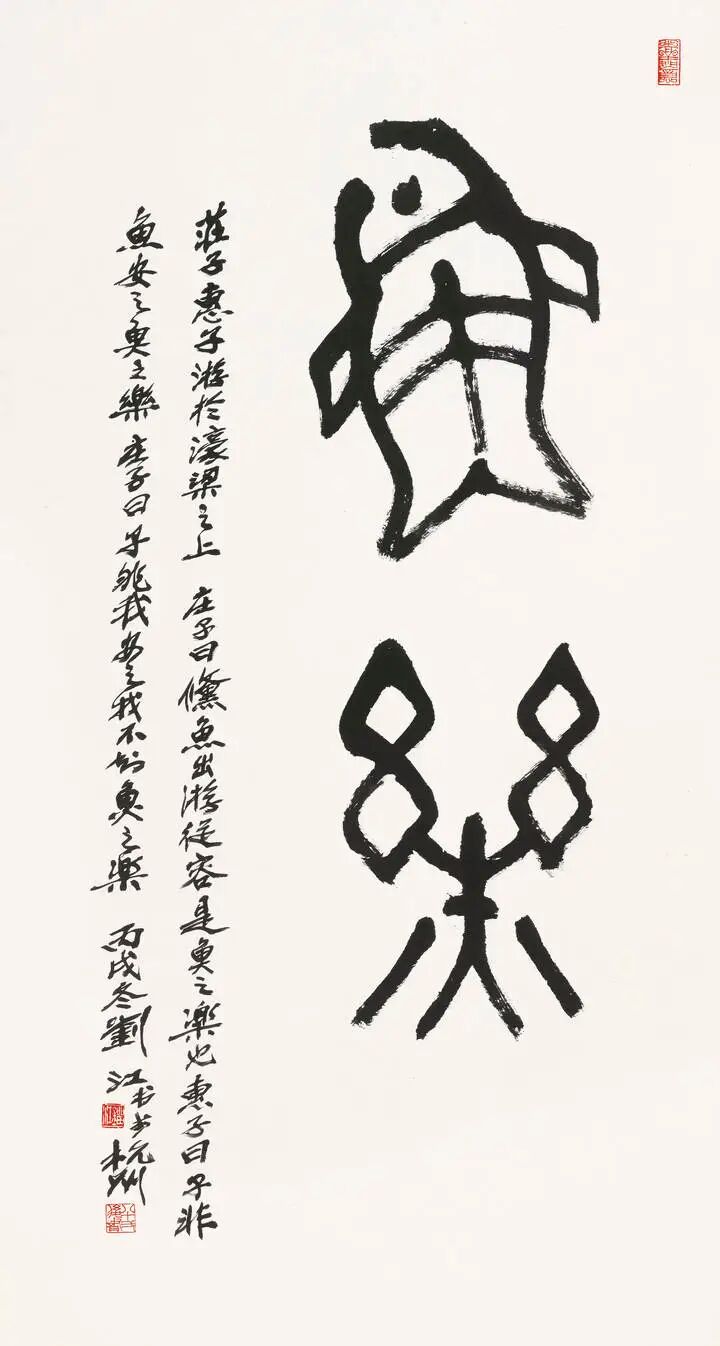 魚樂
莊子惠子游於濠梁之上 庄子曰儵魚出游從容是魚之樂也惠子曰子非
魚安之魚之樂 庄子曰子非我安之我不知魚之樂 丙戌冬劉江书杭州